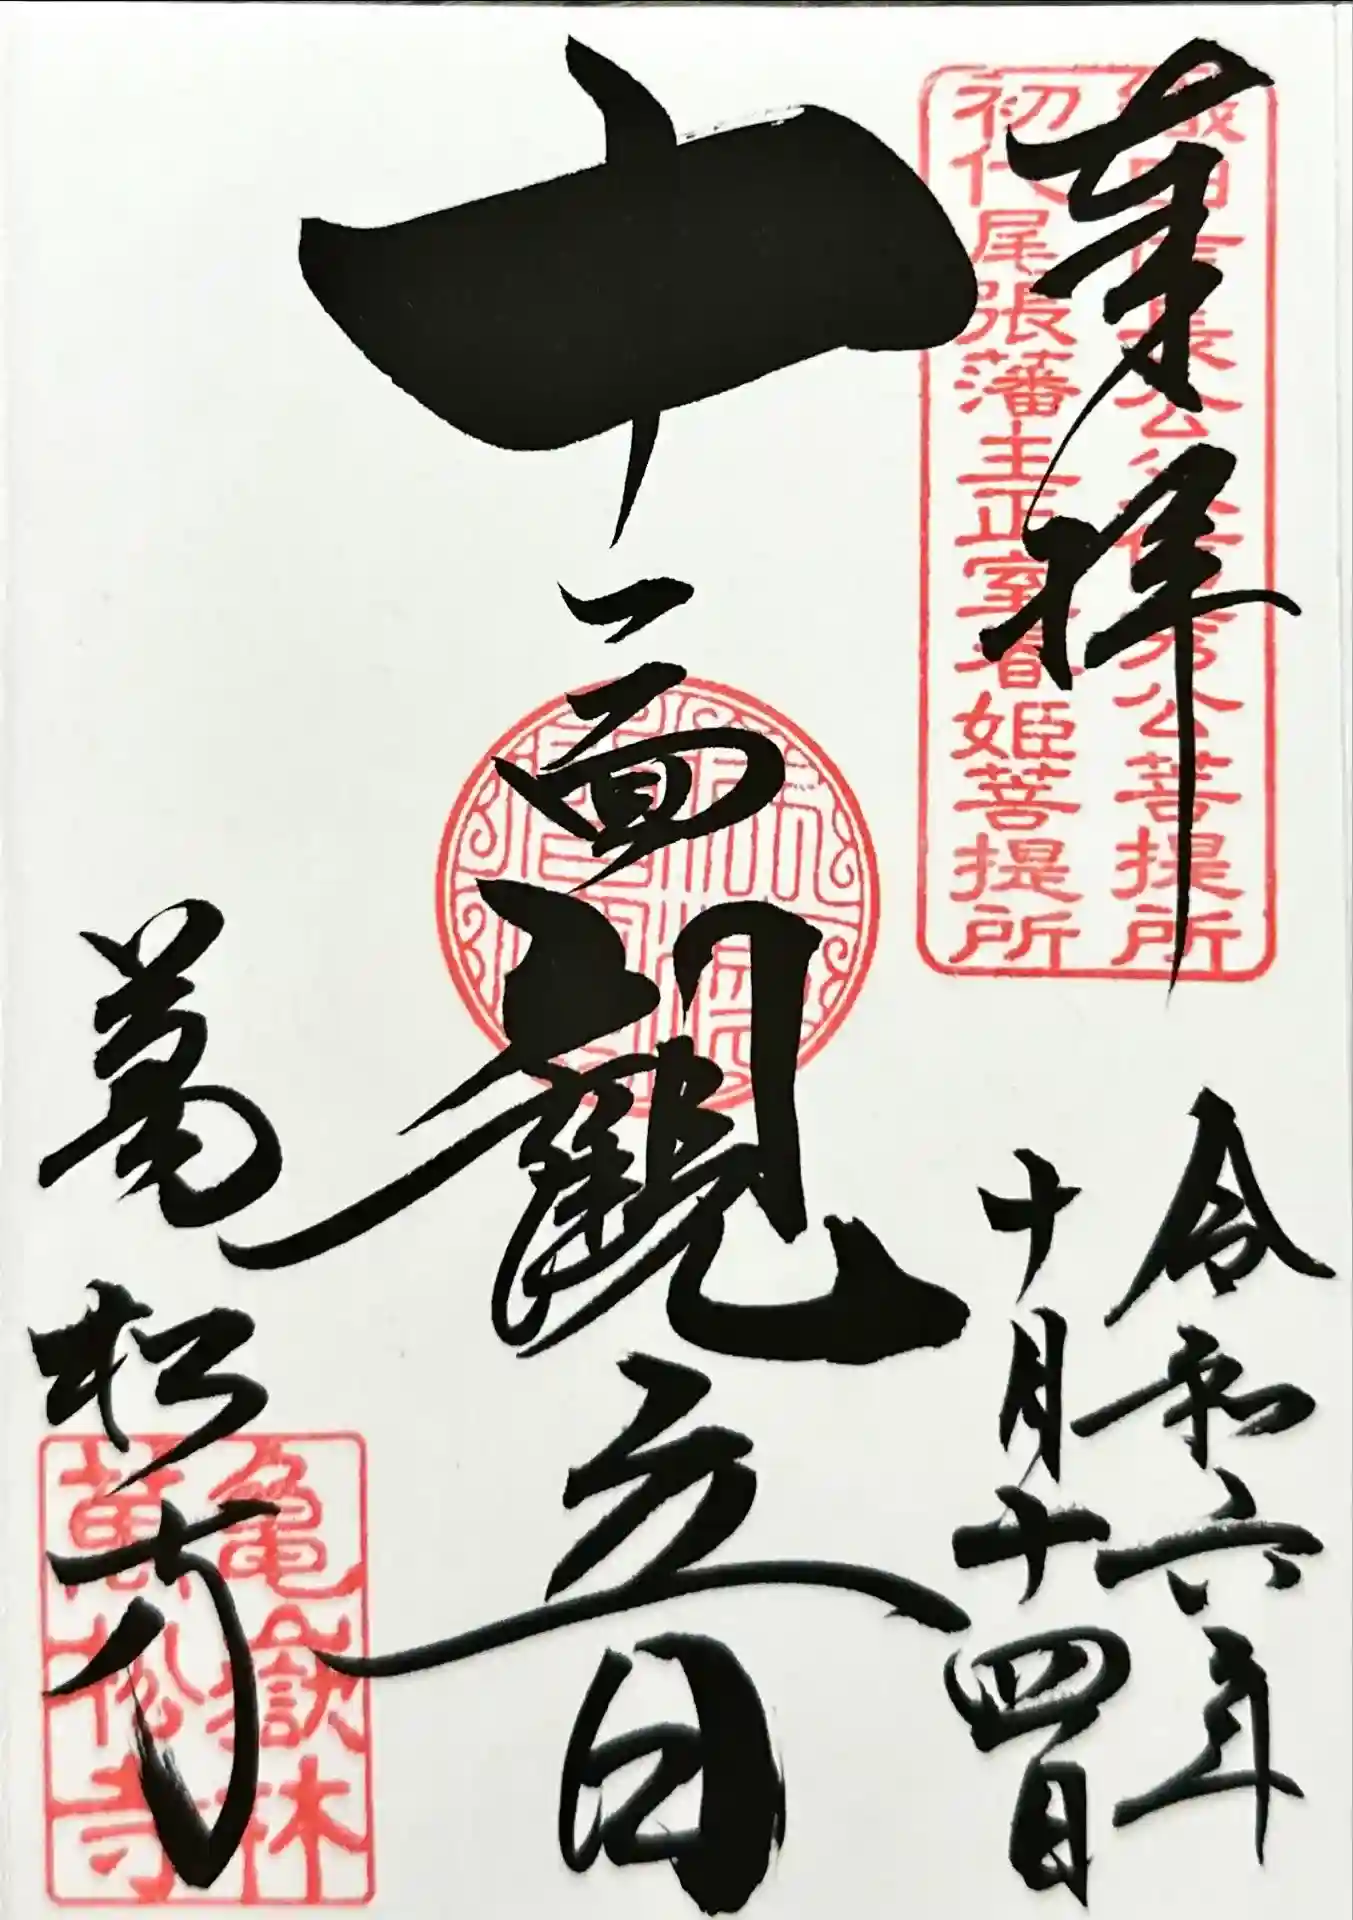 奉拝
織田信長公父信秀公菩提所
初代尾張藩主正室春姫菩提所
令和六年
十月十四日
十一面観音
萬松寺
亀嶽林
萬松寺